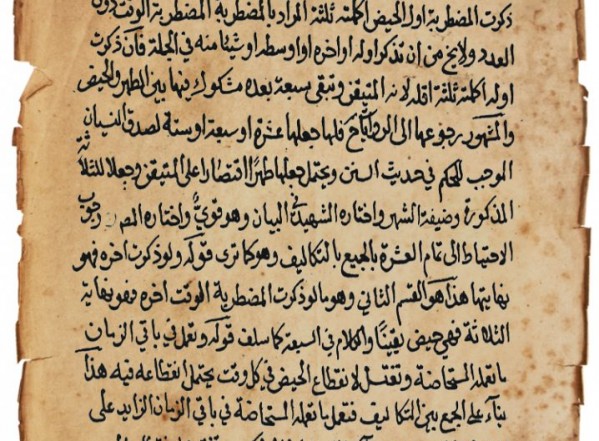 ذكرت المضطربة اول الحيض اكلمته ثلثة المراد بالمضطربة المضطربة الوقت دون
العدد ولا يخ من ان تذكر اوله او اخره او اوسطه او شيئا منه في الجملة فان ذكرت
اوله اكلمته ثلثة اقله لانه المتيقن وتبقى سبعة بعده مشكوك فيها بين الطهر والحيض
والمشهور رجوعها الى الروايات فلها جعلها عشرة او سبعة او ستة لصدق النسيان
الموجب للحكم في حديث السنن ويحتمل جعلها طهرا اقتصارا على المتيقن وجعلا للثلاثة
المذكورة وضيفة الشهر واختاره الشهيد في البيان وهو قوي واختاره المص وجوب
الاحتياط الى تمام العشرة بالجمع بالتكاليف وهو كما ترى قوله ولو ذكرت اخره فهو
نهايتها هذا هو القسم الثاني وهو ما لو ذكرت المضطربة الوقت اخره فهو نهاية
الثلاثة فهي حيض يقينا والكلام في السبعة كما سلف قوله وتعمل في باقي الزمان
ما تعمله المستحاضة وتغتسل لانقطاع الحيض في كل وقت يحتمل انقطاعه فيه هذا
بناء على الجمع بين التكاليف فتعمل ما تعمله المستحاضة في باقي الزمان الزايد على